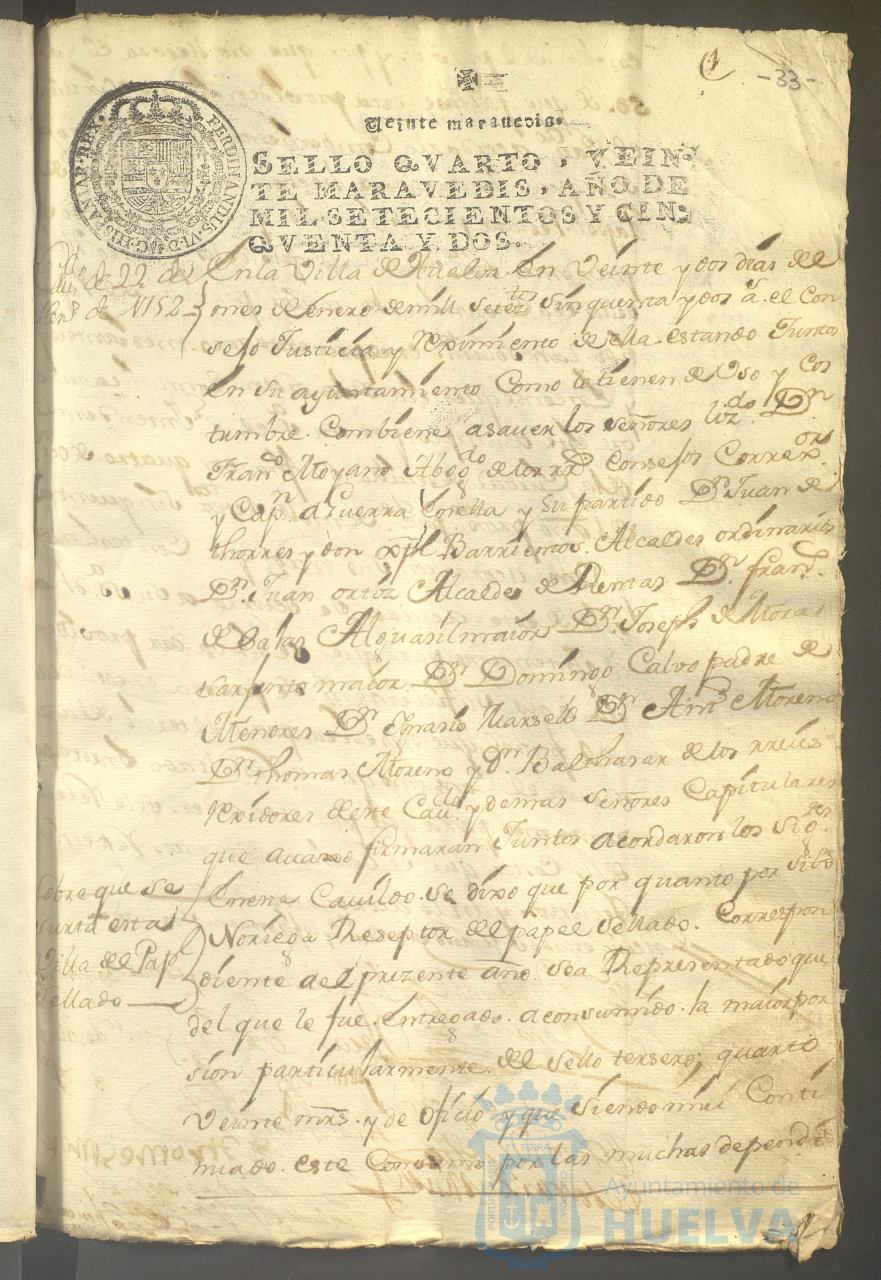 -33-
Veinte maravedis.
SELLO QVARTO, VEIN-
TE MARAVEDIS, AÑO DE
MIL SETECIENTOS Y CIN-
QVENTA Y DOS.
HISPANIAR. REX. FERDINANDUS. VI. D. G.
de 22 de
Enº de 1752
En la Villa de Huelva en Veinte y dos dias del
mes de Enero de mill setetos sinquenta y dos as. el Con
sejo Justicia y Reximiento de ella estando Juntos
en su ayuntamiento Como lo tienen de Vso y Cos
tumbre. Combiene asauer los señores lizdo. Dn
Franco Moyano Abogdo de los rrs Consejos Correxor
y Capn. a Guerra en ella y su partido Dn Juan de
thorres y don xptl Barrientos Alcaldes ordinarios
Dn. Juan ortiz Alcalde de Rentas Dn. franco.
de Salas Alguasil maior Dn. Joseph de Moras
sarjento maior Dn Domingo Calvo padre de
Menores Dn Ignasio Marselo Dn Anto Moreno
Dn thomas Moreno y Dn Balthasar de los rreies
Rexidores de este Caudo y demas señores Capitulares
que auajo firmaran Juntos acordaron lo sigte
Sobre que se
surta esta
Villa del Papl
Sellado
En este Cauildo se dixo que por quanto por
Noriega Reseptor del papel sellado. Correspon
diente al prezente año sea Representado que
del que le fue entregado a consumido la maior por
sion particularmente del sello tersero, quarto
Veinte mrs. y de oficio y que siendo mui Conti
nuado este Consumo por las muchas dependi
Ayuntamiento de
HUELVA